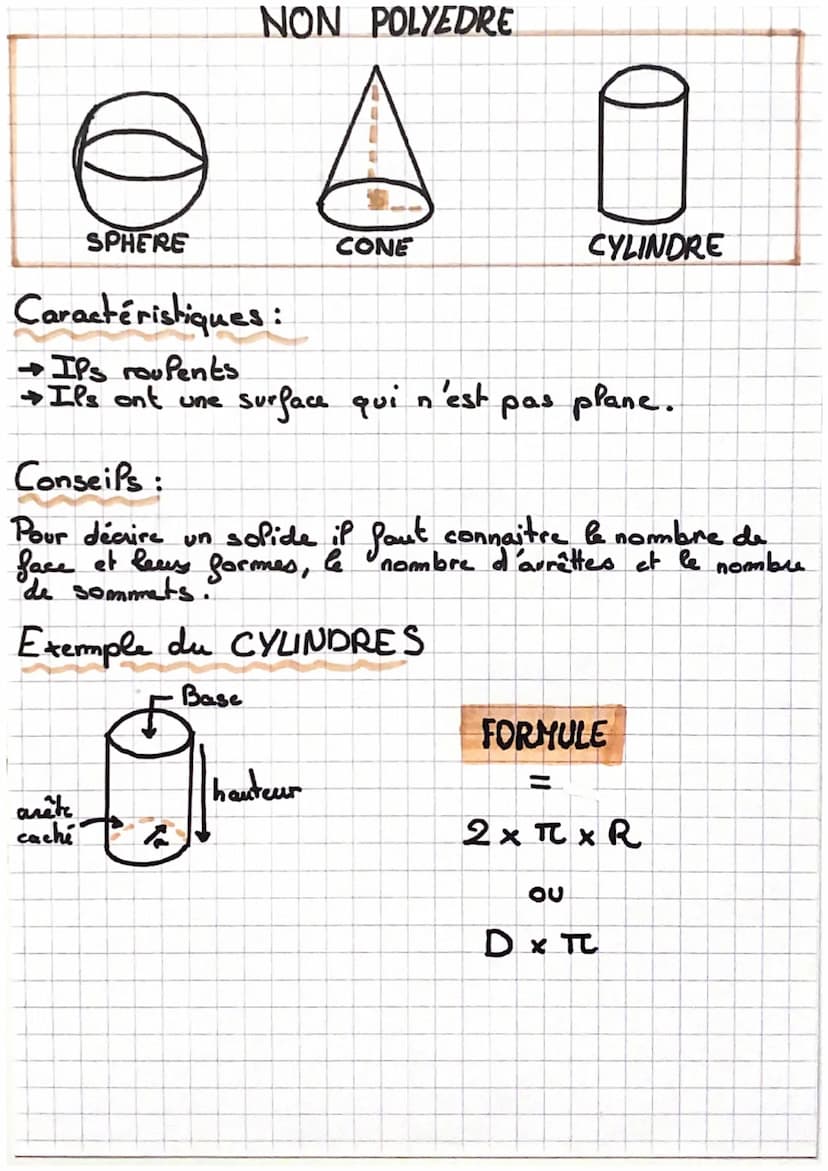 NON POLYEDRE
SPHERE
CONE
CYLINDRE
Caractéristiques :
→ Ils roulents
→ Ils ont une surface qui n'est pas plane.
Conseils :
Pour décrire un solide il faut connaitre le nombre de
face et leurs formes, le nombre d'arrêttes et le nombre
de sommets.
Exemple du CYLINDRES
Base
hauteur
arête
caché
r
FORMULE
=
2 x π x R
ou
D x π